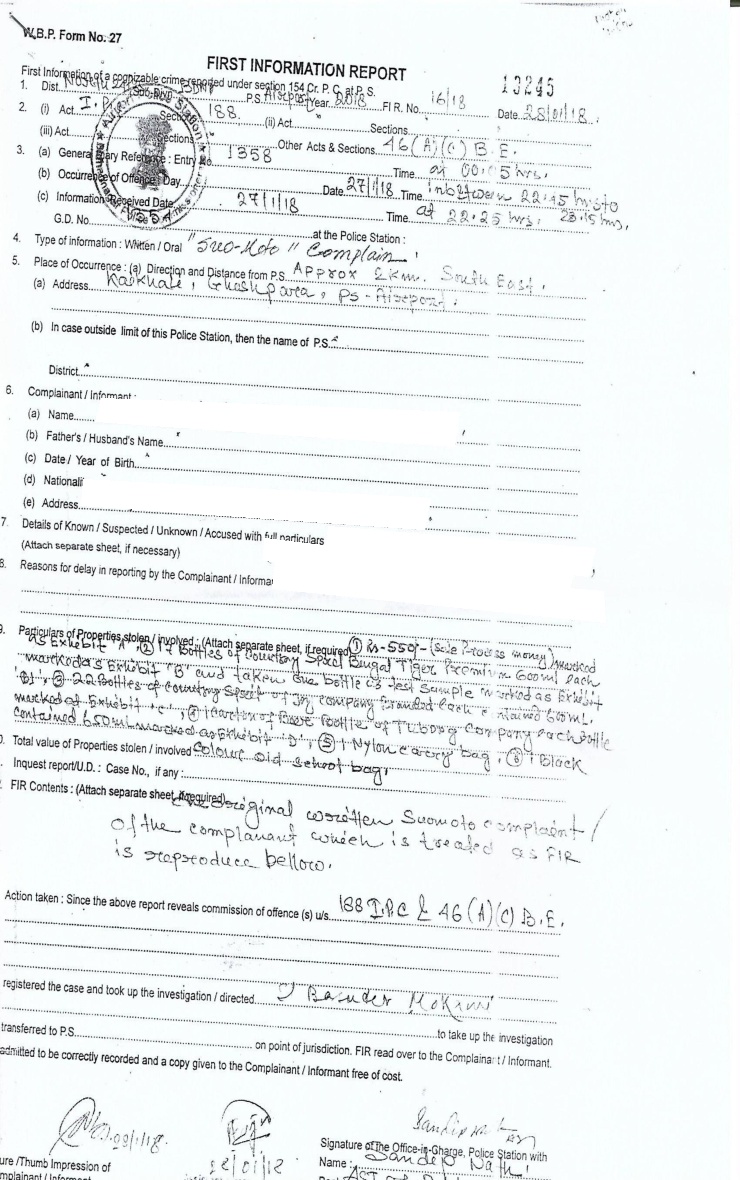 W.B.P. Form No. 27
FIRST INFORMATION REPORT
First Information of a cognizable crime reported under section 154 Cr. P. C. at P. S.
13245
1. Dist. P.S. Airport Year 2018 FIR. No. 16/18 Date 28/01/18.
2. (i) Act I.P.C Section 188. (ii) Act Sections
(iii) Act Sections Other Acts & Sections 46(A)(C) B.E.
3. (a) General Diary Reference : Entry No. 1358 Time at 00:05 hrs.
(b) Occurrence of Offence : Day Date 27/1/18 Time inbetween 22:15 hrs to
(c) Information Received Date 27/1/18 Time at 22:25 hrs. 23:15 hrs.
G.D. No. at the Police Station :
4. Type of information : Written / Oral "Suo-Moto" Complain
5. Place of Occurrence : (a) Direction and Distance from P.S. Approx 2 km. South East.
(a) Address Kaikhali, Ghoshpara, PS - Airport.
(b) In case outside limit of this Police Station, then the name of P.S.
District
6. Complainant / Informant :
(a) Name
(b) Father's / Husband's Name
(c) Date / Year of Birth
(d) Nationali
(e) Address
7. Details of Known / Suspected / Unknown / Accused with full particulars
(Attach separate sheet, if necessary)
8. Reasons for delay in reporting by the Complainant / Informa
9. Particulars of Properties stolen / involved : (Attach separate sheet, if required) (1) Rs-550/- (Sale Process money) marked
as Exhibit 'A', (2) 17 Bottles of Country Spirit Bengal Tiger Premium 600ml each
marked as Exhibit "B" and taken one bottle as test sample marked as Exhibit
'B1', (3) 22 Bottles of country Spirit of company branded each contained 600ml.
marked as Exhibit 'C', (4) 1 carton of Beer Bottle of Tuborg Company each bottle
contained 650ml marked as Exhibit 'D', (5) 1 Nylon carry bag, (6) 1 Black
Total value of Properties stolen / involved Colour old school bag.
Inquest report/U.D.: Case No., if any :
FIR Contents : (Attach separate sheet, if required)
The Original written Suomoto complaint
of the complanant which is treated as FIR
is reproduce bellow.
Action taken : Since the above report reveals commission of offence (s) u/s. 188 I.P.C & 46(A)(C) B.E.
registered the case and took up the investigation / directed
to take up the investigation
transferred to P.S. on point of jurisdiction. FIR read over to the Complainant / Informant.
admitted to be correctly recorded and a copy given to the Complainant / Informant free of cost.
Signature of The Office-in-Gharge, Police Station with
ure /Thumb Impression of
Name : Sandip Nath